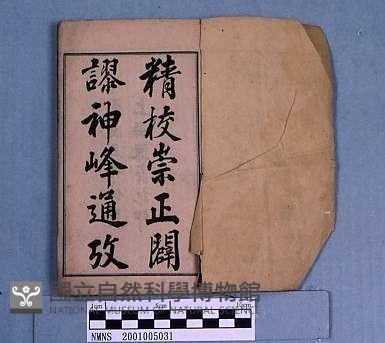 精校崇正闢
謬神峰通攷
國立自然科學博物館
NATIONAL MUSEUM OF NATURAL SCIENCE
0cm 5cm 10cm
NMNS 2001005031